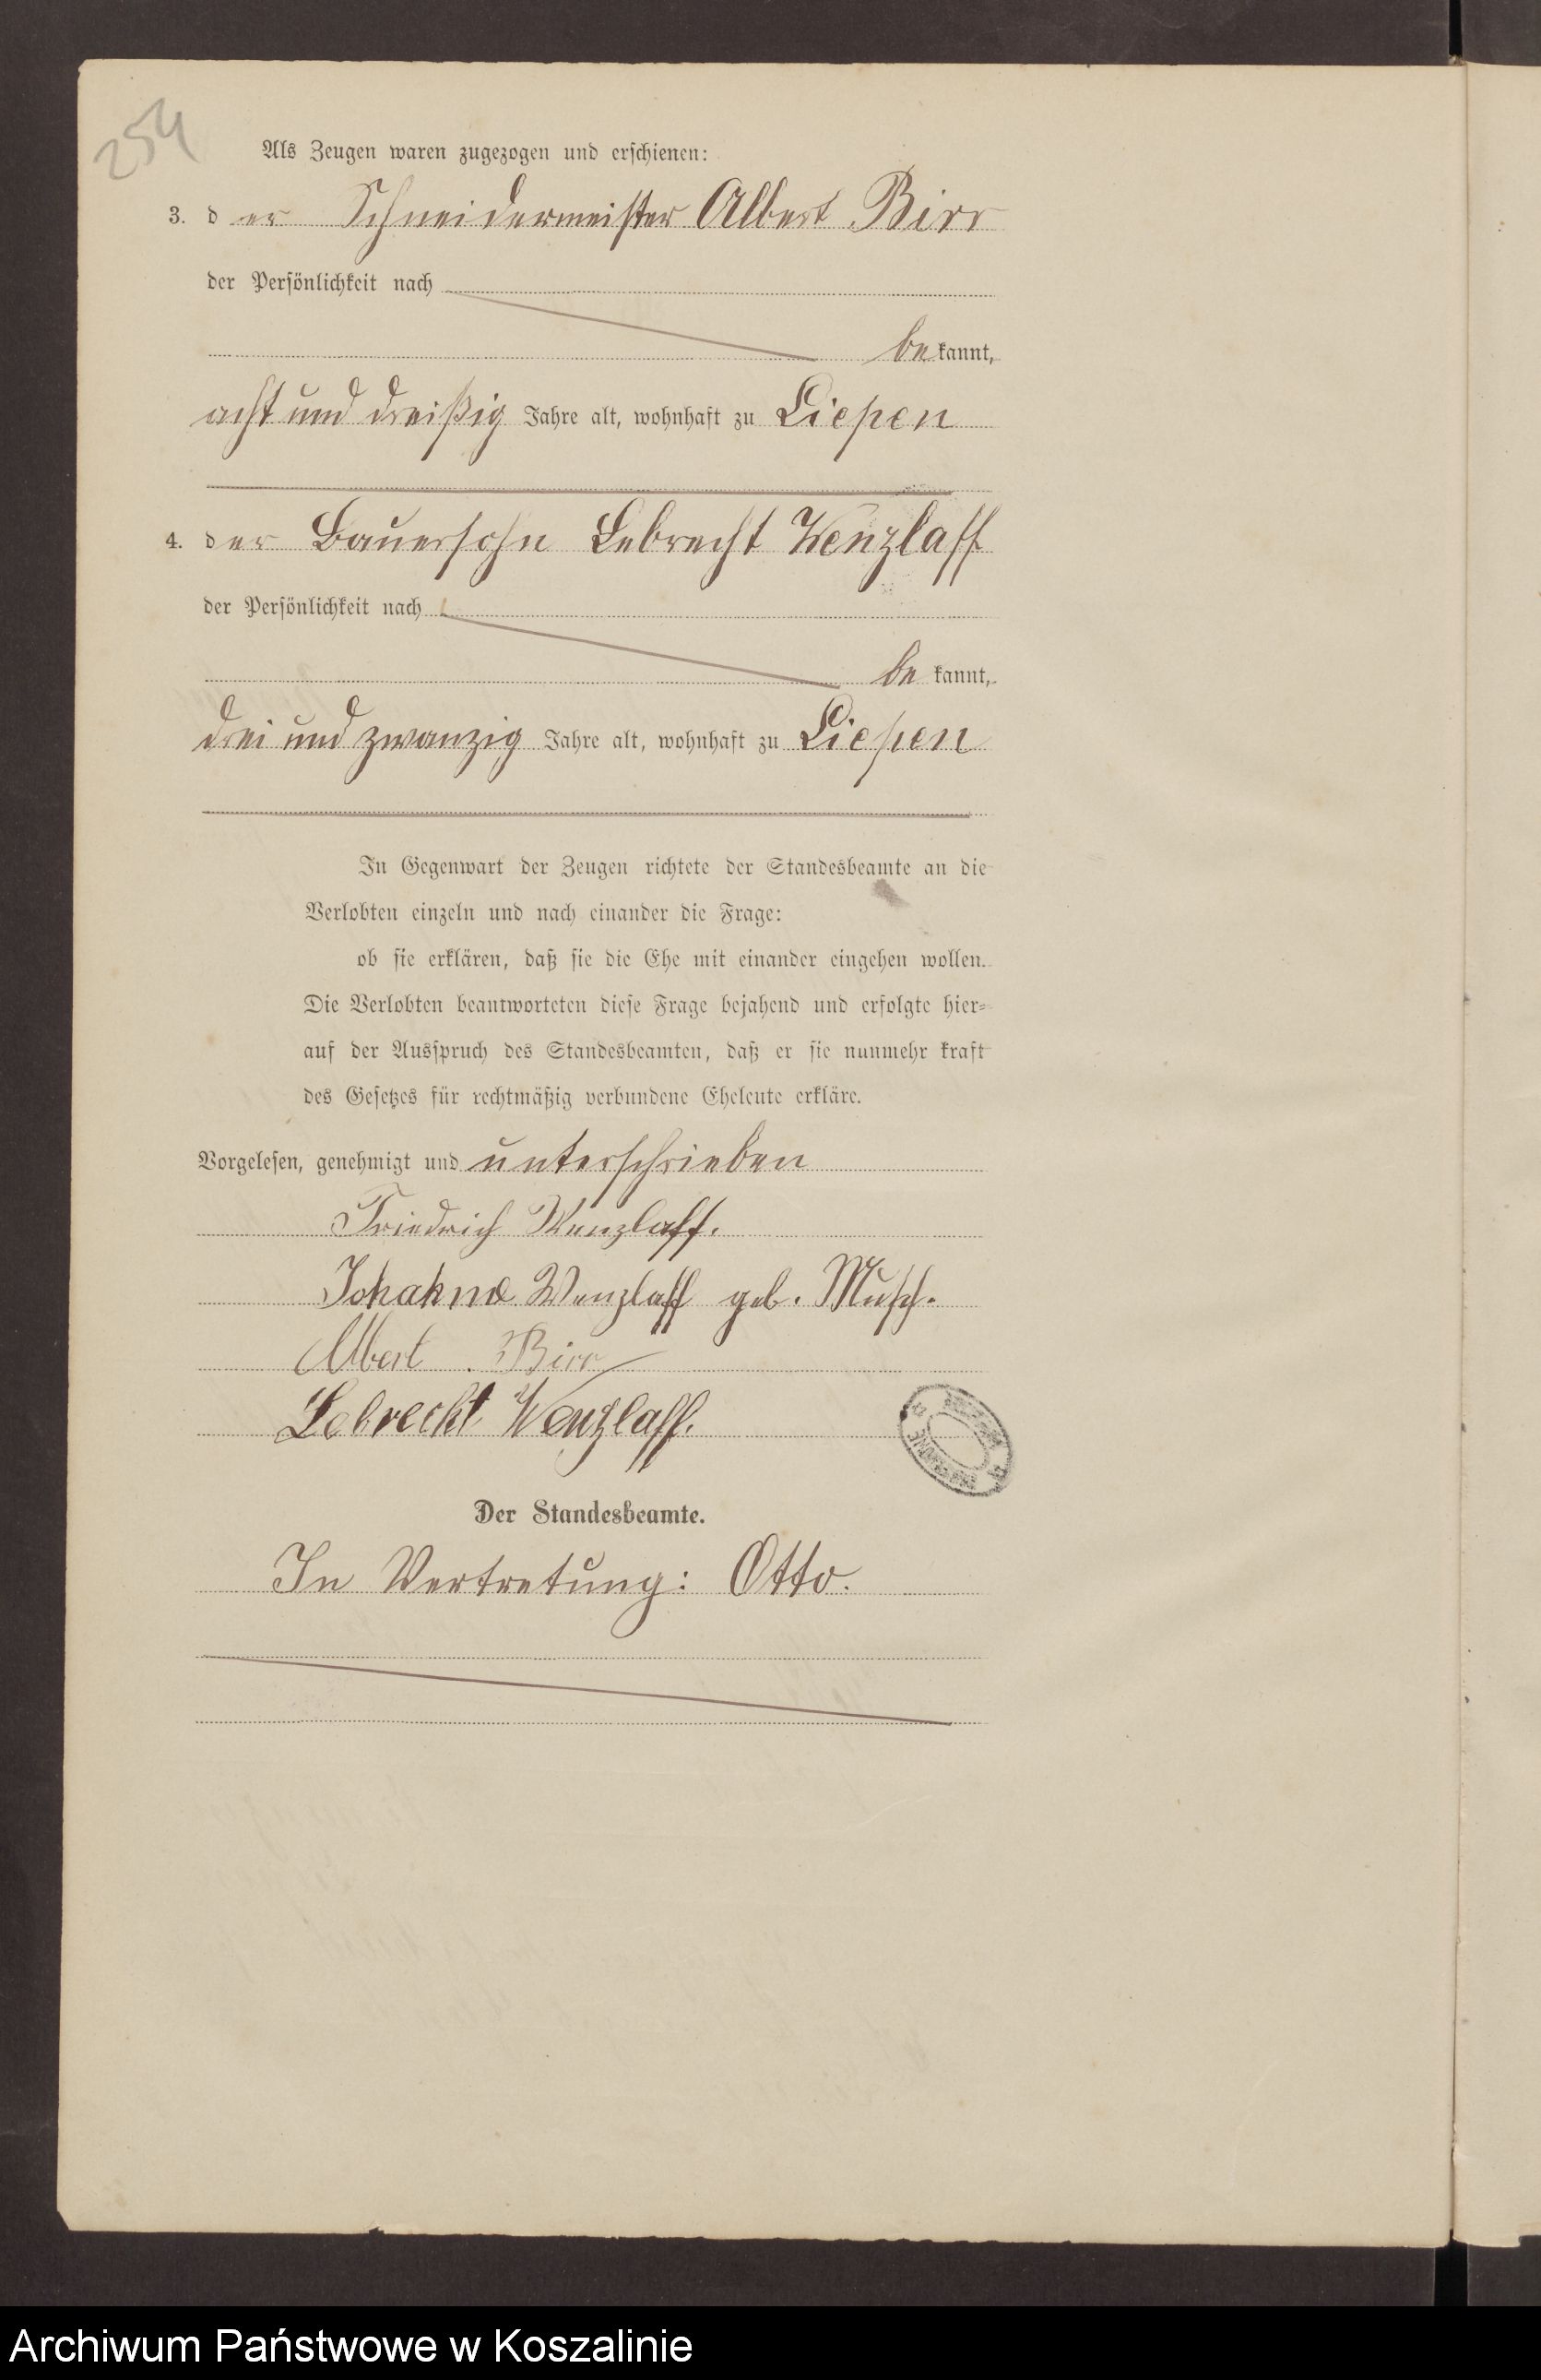 254
Als Zeugen waren zugezogen und erschienen:
3. der Schneidermeister Albert Birr
der Persönlichkeit nach
bekannt,
acht und dreißig Jahre alt, wohnhaft zu Liepen
4. der Bauersohn Lebrecht Wenzlaff
der Persönlichkeit nach
bekannt,
drei und zwanzig Jahre alt, wohnhaft zu Liepen
In Gegenwart der Zeugen richtete der Standesbeamte an die
Verlobten einzeln und nach einander die Frage:
ob sie erklären, daß sie die Ehe mit einander eingehen wollen.
Die Verlobten beantworteten diese Frage bejahend und erfolgte hier-
auf der Ausspruch des Standesbeamten, daß er sie nunmehr kraft
des Gesetzes für rechtmäßig verbundene Eheleute erkläre.
Vorgelesen, genehmigt und unterschrieben
Friedrich Wenzlaff.
Johanne Wenzlaff geb. Musch.
Albert Birr
Lebrecht Wenzlaff.
Der Standesbeamte.
In Vertretung: Otto.
Archiwum Państwowe w Koszalinie